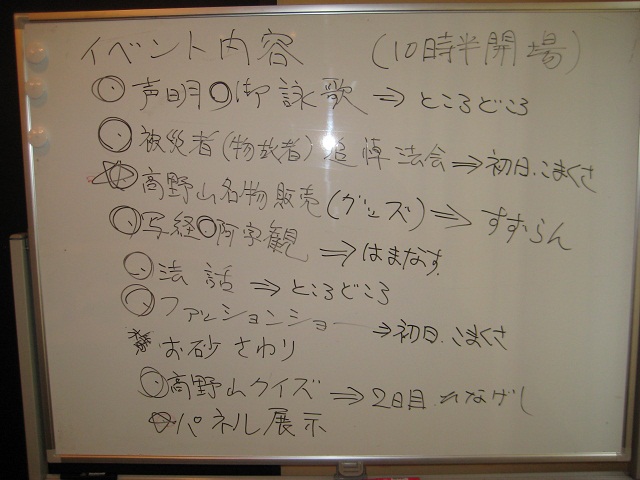 イベント内容 (10時半開場)
◎声明○御詠歌⇒ところどころ
◎被災者(物故者)追悼法会⇒初日.こまくさ
高野山名物販売(グッズ)⇒すずらん
◎写経○阿字観⇒はまなす.
◎法話⇒ところどころ
◎ファッションショー⇒初日.こまくさ
お砂さわり
◎高野山クイズ⇒2日目.
パネル展示